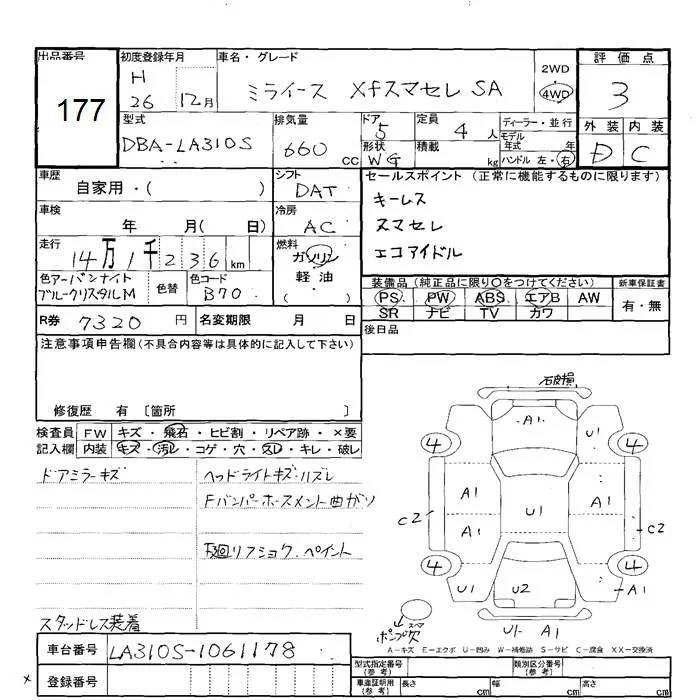 出品番号 初度登録年月 車名・グレード 評価点
177
H 26 12月
ミライース XfスマセレSA
2WD
4WD
3
型式 排気量 ドア 定員 ディーラー・並行 外装 内装
DBA-LA310S 660 CC 5 4人 モデル年式 年
形状 積載 kg ハンドル 左・右
WG
D C
車歴 シフト セールスポイント(正常に機能するものに限ります)
自家用・( ) DAT
キーレス
車検 冷房
年 月( 日) AC
スマセレ
走行 燃料
14万1千236km ガソリン
エコアイドル
軽油
色アーバンナイト 色替 色コード
ブルークリスタルM B70
装備品(純正品に限り○をつけてください) 新車保証書
PS PW ABS エアB AW 有・無
SR ナビ TV カワ
R券 7320円 名変期限 月 日
後日品
注意事項申告欄(不具合内容等は具体的に記入して下さい)
修復歴 有 〔箇所 〕
検査員 FW キズ・飛石・ヒビ割・リペア跡・×要
記入欄 内装 キズ・汚レ・コゲ・穴・スレ・キレ・破レ
ドアミラーキズ ヘッドライトキズ・ハズレ
Fバンパーホースメント曲ガリ
下廻リアショク.ペイント
スタッドレス装着
石皮損
A1
U1
4 4
A1 A1
C2 U1 C2
A1 A1
4 4
U1 U2 A1
スペア
ポンプ吹
U1- A1
A-キズ E-エクボ U-凹み W-補修跡 S-サビ C-腐食 XX-交換済
車台番号 LA310S-1061178
型式指定番号(参考) 類別区分番号(参考)
× 登録番号
車庫証明用(参考) 長さ cm 幅 cm 高さ cm